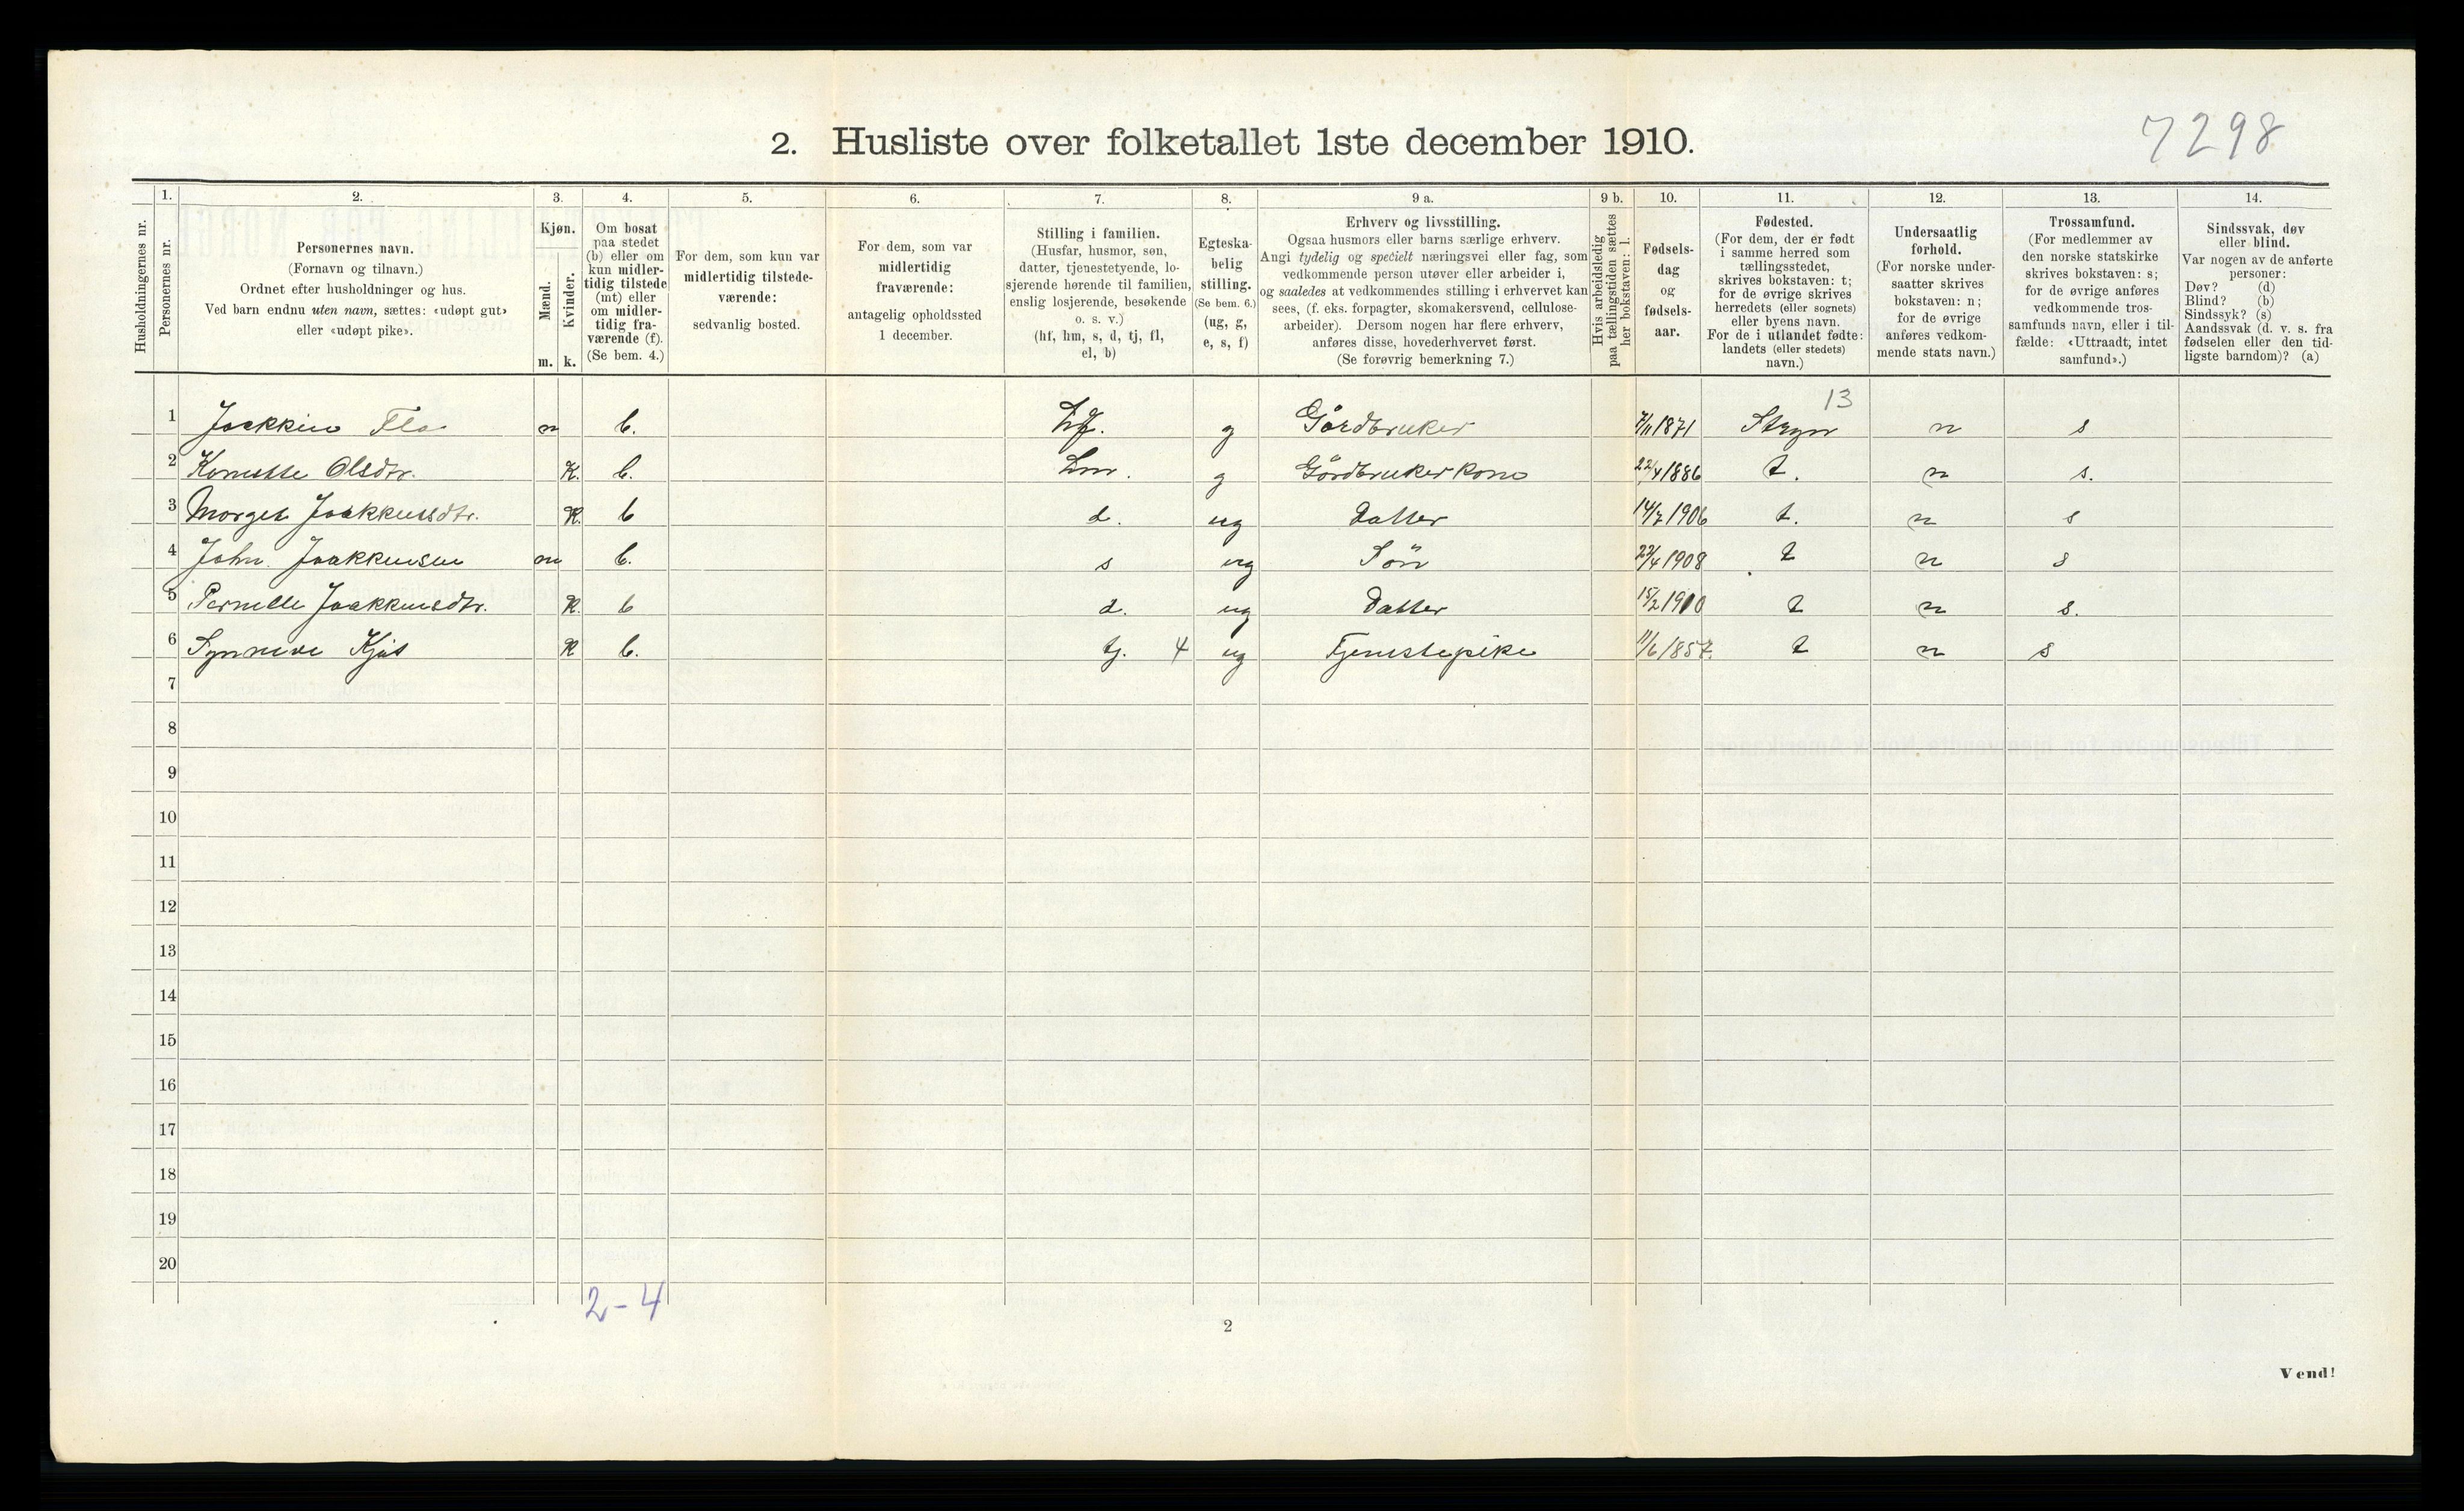 7298
2. Husliste over folketallet 1ste december 1910.
1. 2. 3. 4. 5. 6. 7. 8. 9 a. 9 b. 10. 11. 12. 13. 14.
Husholdningernes nr.
Personernes nr.
Personernes navn.
(Fornavn og tilnavn.)
Ordnet efter husholdninger og hus.
Ved barn endnu uten navn, sættes: «udøpt gut»
eller «udøpt pike».
Kjøn.
Mænd.
m.
Kvinder.
k.
Om bosat
paa stedet
(b) eller om
kun midler-
tidig tilstede
(mt) eller
om midler-
tidig fra-
værende (f).
(Se bem. 4.)
For dem, som kun var
midlertidig tilstede-
værende:
sedvanlig bosted.
For dem, som var
midlertidig
fraværende:
antagelig opholdssted
1 december.
Stilling i familien.
(Husfar, husmor, søn,
datter, tjenestetyende, lo-
sjerende hørende til familien,
enslig losjerende, besøkende
o. s. v.)
(hf, hm, s, d, tj, fl,
el, b)
Egteska-
belig
stilling.
(Se bem. 6.)
(ug, g,
e, s, f)
Erhverv og livsstilling.
Ogsaa husmors eller barns særlige erhverv.
Angi tydelig og specielt næringsvei eller fag, som
vedkommende person utøver eller arbeider i,
og saaledes at vedkommendes stilling i erhvervet kan
sees, (f. eks. forpagter, skomakersvend, cellulose-
arbeider). Dersom nogen har flere erhverv,
anføres disse, hovederhvervet først.
(Se forøvrig bemerkning 7.)
Hvis arbeidsledig
paa tællingstiden sættes
her bokstaven: l.
Fødsels-
dag
og
fødsels-
aar.
Fødested.
(For dem, der er født
i samme herred som
tællingsstedet,
skrives bokstaven: t;
for de øvrige skrives
herredets (eller sognets)
eller byens navn.
For de i utlandet fødte:
landets (eller stedets)
navn.)
Undersaatlig
forhold.
(For norske under-
saatter skrives
bokstaven: n;
for de øvrige
anføres vedkom-
mende stats navn.)
Trossamfund.
(For medlemmer av
den norske statskirke
skrives bokstaven: s;
for de øvrige anføres
vedkommende tros-
samfunds navn, eller i til-
fælde: «Uttraadt, intet
samfund».)
Sindssvak, døv
eller blind.
Var nogen av de anførte
personer:
Døv? (d)
Blind? (b)
Sindssyk? (s)
Aandssvak (d. v. s. fra
fødselen eller den tid-
ligste barndom)? (a)
13
1 Jaekkin Flo m b. hf. g Gårdbruker 7/11 1871 Stryn n s
2 Olsdtr. K. b. hm. g Gårdbrukerkone 22/4 1886 t. n s.
3 Marget Jaakkensdtr. K. b d. ug Datter 14/7 1906 t. n s
4 John Jaakkensen m b. s ug Sön 1908 t n s
5 Pernille Jaakkensdtr. K. b d. ug Datter 15/2 1910 t n s.
6 Synneve Kjøs K b. tj. 4 ug Tjenestepike 11/6 1857. t n s
7
8
9
10
11
12
13
14
15
16
17
18
19
20
2-4
2
Vend!